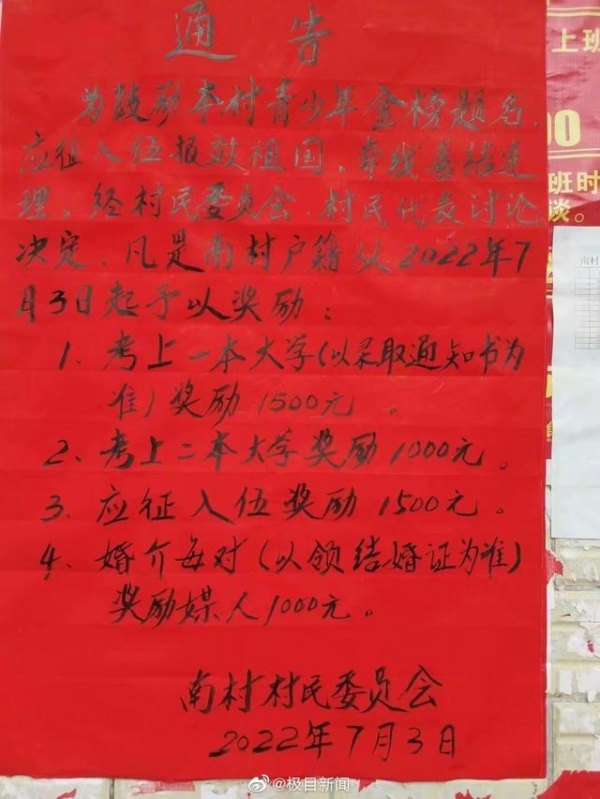 通告
为鼓励本村青少年金榜题名、
应征入伍报效祖国，牵线喜结连
理，经村民委员会、村民代表讨论
决定，凡是南村户籍从2022年7
月3日起予以奖励：
1、考上一本大学(以录取通知书为
准)奖励1500元。
2、考上二本大学奖励1000元。
3、应征入伍奖励1500元。
4、婚介每对(以领结婚证为准)
奖励媒人1000元。
南村村民委员会
2022年7月3日
上班
00
班时
谈。
南村
@极目新闻